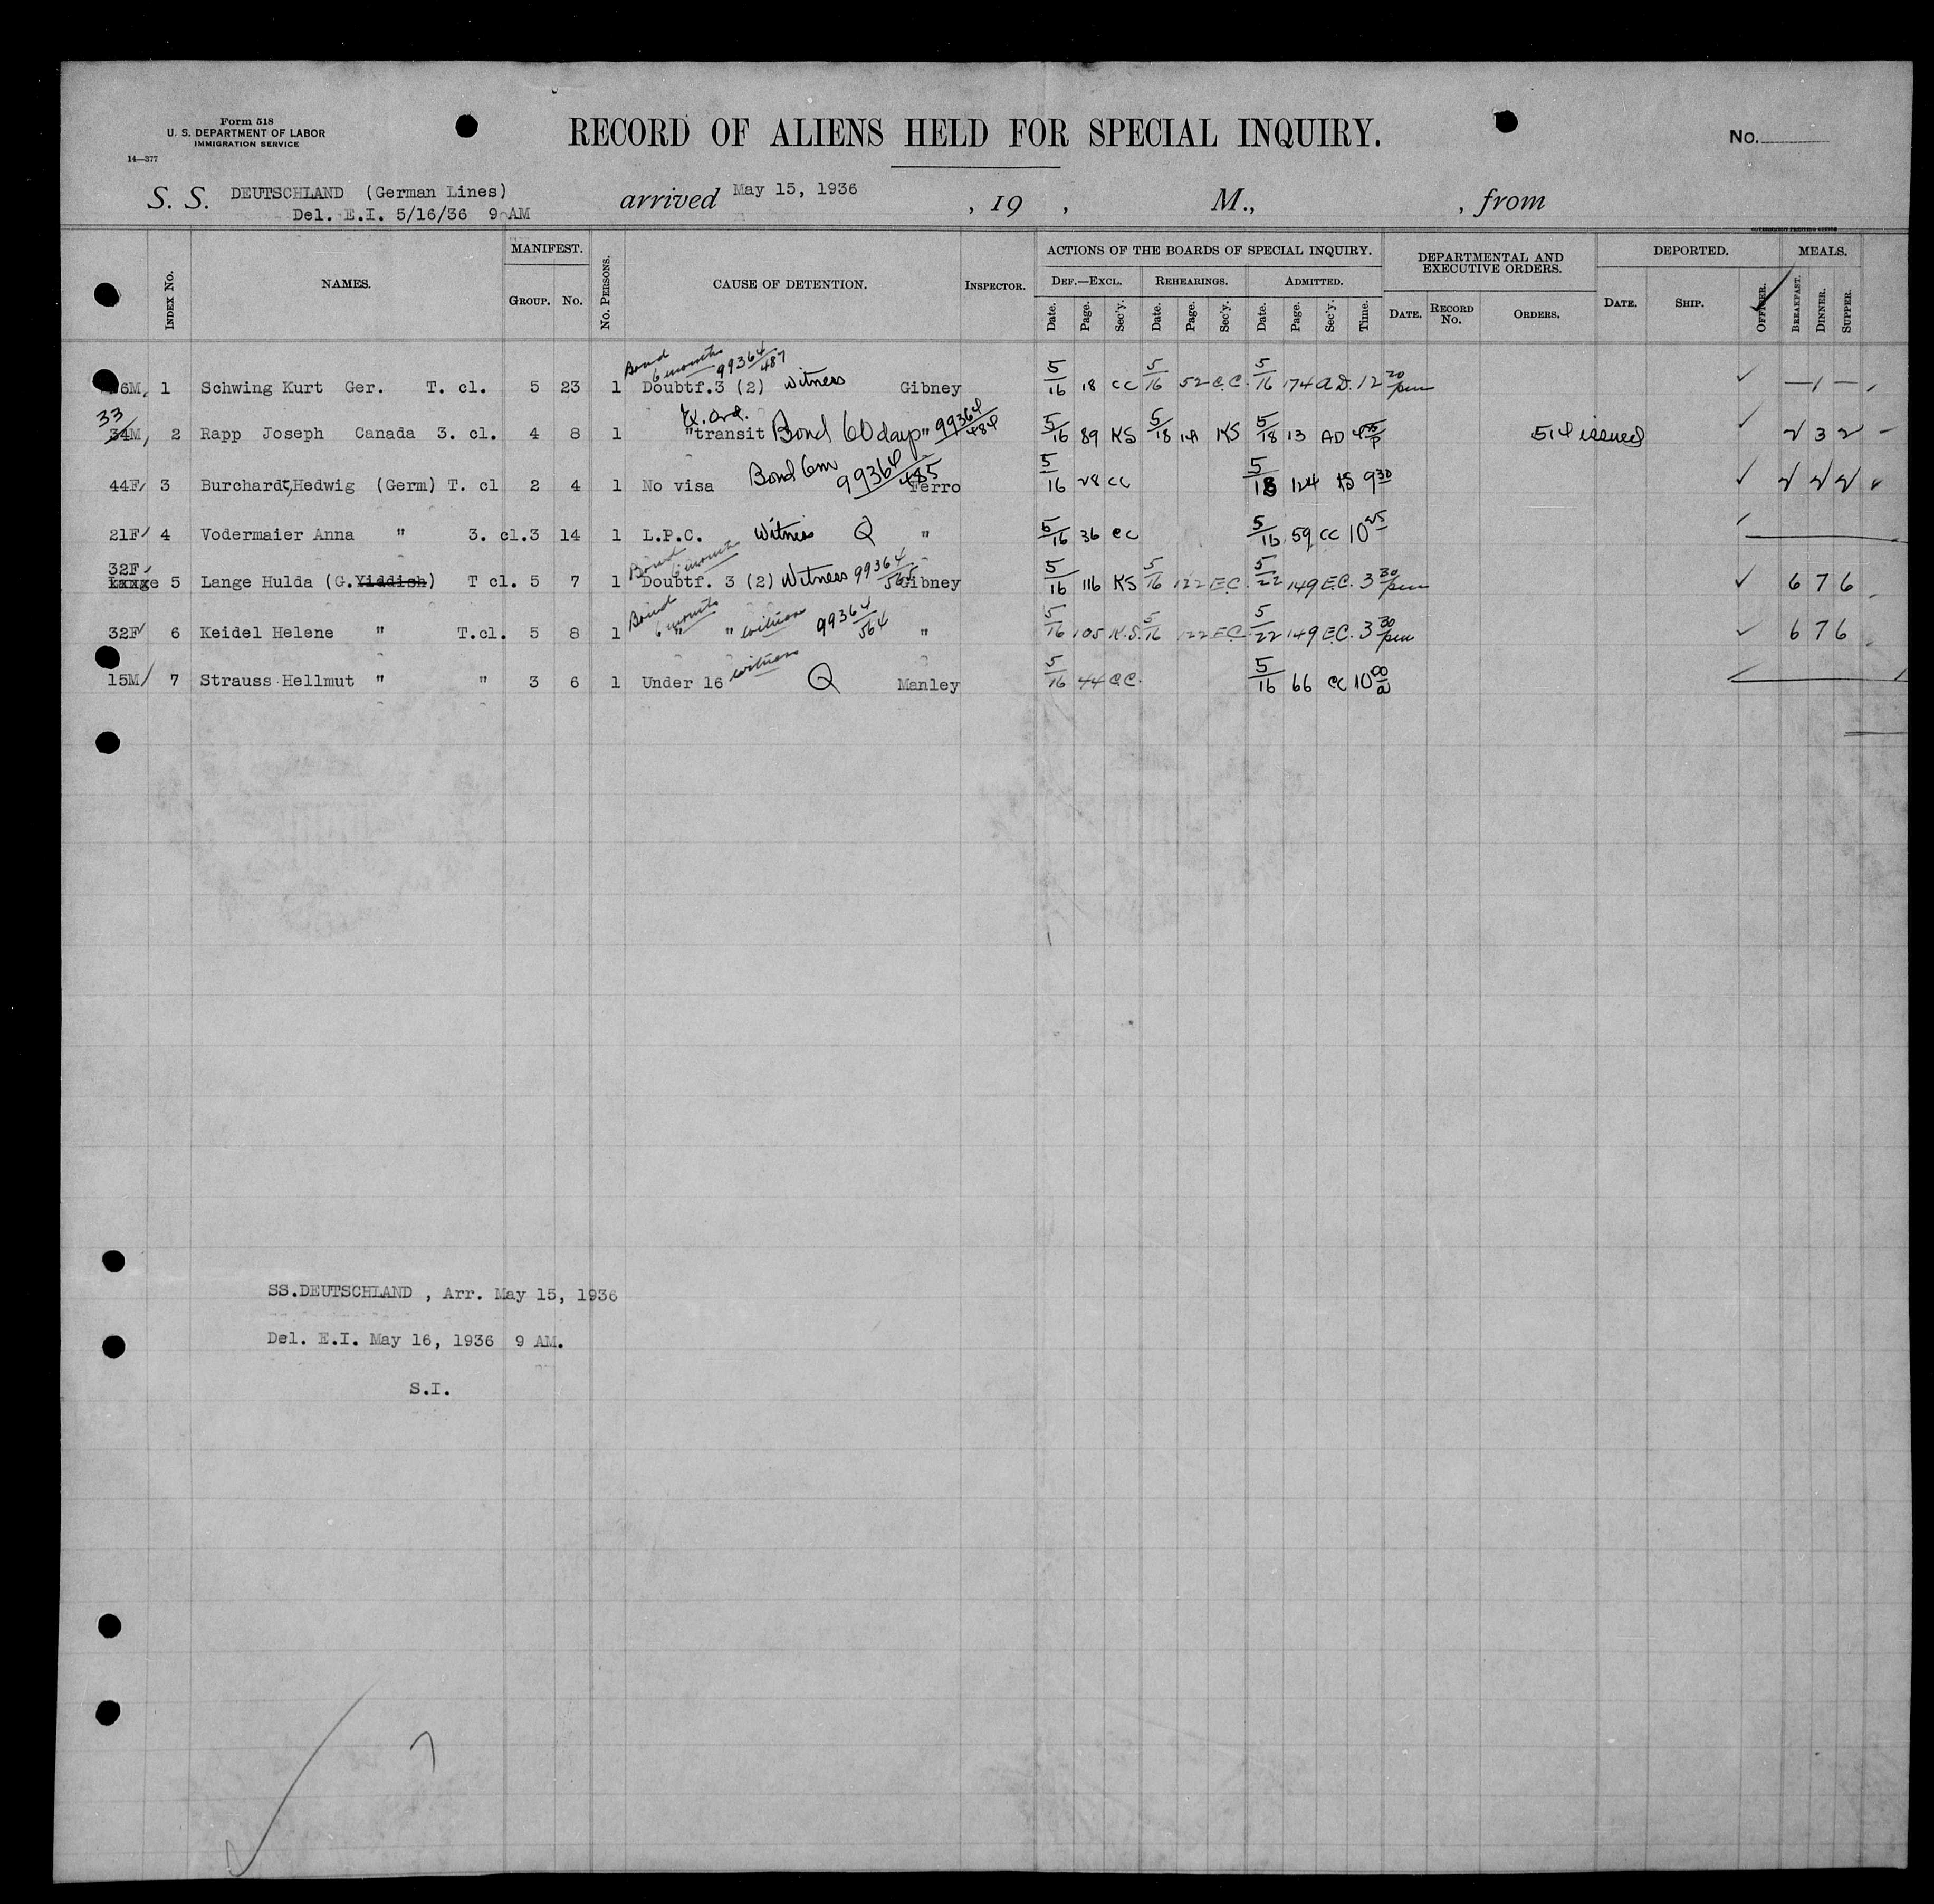 Form 518
U. S. DEPARTMENT OF LABOR
IMMIGRATION SERVICE
14—377
RECORD OF ALIENS HELD FOR SPECIAL INQUIRY.
No.
S. S. DEUTSCHLAND (German Lines) arrived May 15, 1936 , 19 , M., , from
Del. E.I. 5/16/36 9 AM
GOVERNMENT PRINTING OFFICE
INDEX No. NAMES. MANIFEST. GROUP. No. No. PERSONS. CAUSE OF DETENTION. INSPECTOR. ACTIONS OF THE BOARDS OF SPECIAL INQUIRY. DEPARTMENTAL AND EXECUTIVE ORDERS. DEPORTED. MEALS.
DEF.—EXCL. REHEARINGS. ADMITTED.
Date. Page. Sec'y. Date. Page. Sec'y. Date. Page. Sec'y. Time. DATE. RECORD No. ORDERS. DATE. SHIP. OFFICER. BREAKFAST. DINNER. SUPPER.
Bond 6 months 99364/487
6M, 1 Schwing Kurt Ger. T. cl. 5 23 1 Doubtf.3 (2) Witness Gibney 5/16 18 CC 5/16 52 C.C. 5/16 174 A.D. 12 20 pm — 1 —
33 Ex. Ord.
34M, 2 Rapp Joseph Canada 3. cl. 4 8 1 "transit Bond 60 days " 99364/484 5/16 89 KS 5/18 14 KS 5/18 13 AD 514 issued 2 3 2 —
44F 3 Burchardt, Hedwig (Germ) T. cl 2 4 1 No visa Bond 6m 99364/485 Ferro 5/16 28 CC 5/18 124 KS 9 30 2 2 2
21F 4 Vodermaier Anna " 3. cl. 3 14 1 L.P.C. Witness Q " 5/16 36 CC 5/16 59 CC 10 25
32F Bond 6 months
5 Lange Hulda (G. Yiddish) T cl. 5 7 1 Doubtf. 3 (2) Witness 99364/565 Gibney 5/16 116 KS 5/16 122 E.C. 5/22 149 E.C. 3 30 pm 6 7 6
Bond 6 months
32F 6 Keidel Helene " T.cl. 5 8 1 " " witness 99364/564 " 5/16 105 K.S. 5/16 122 E.C. 5/22 149 E.C. 3 30 pm 6 7 6
15M 7 Strauss Hellmut " " 3 6 1 Under 16 witness Q Manley 5/16 44 C.C. 5/16 66 CC 10 00 a
SS.DEUTSCHLAND , Arr. May 15, 1936
Del. E.I. May 16, 1936 9 AM.
S.I.
7